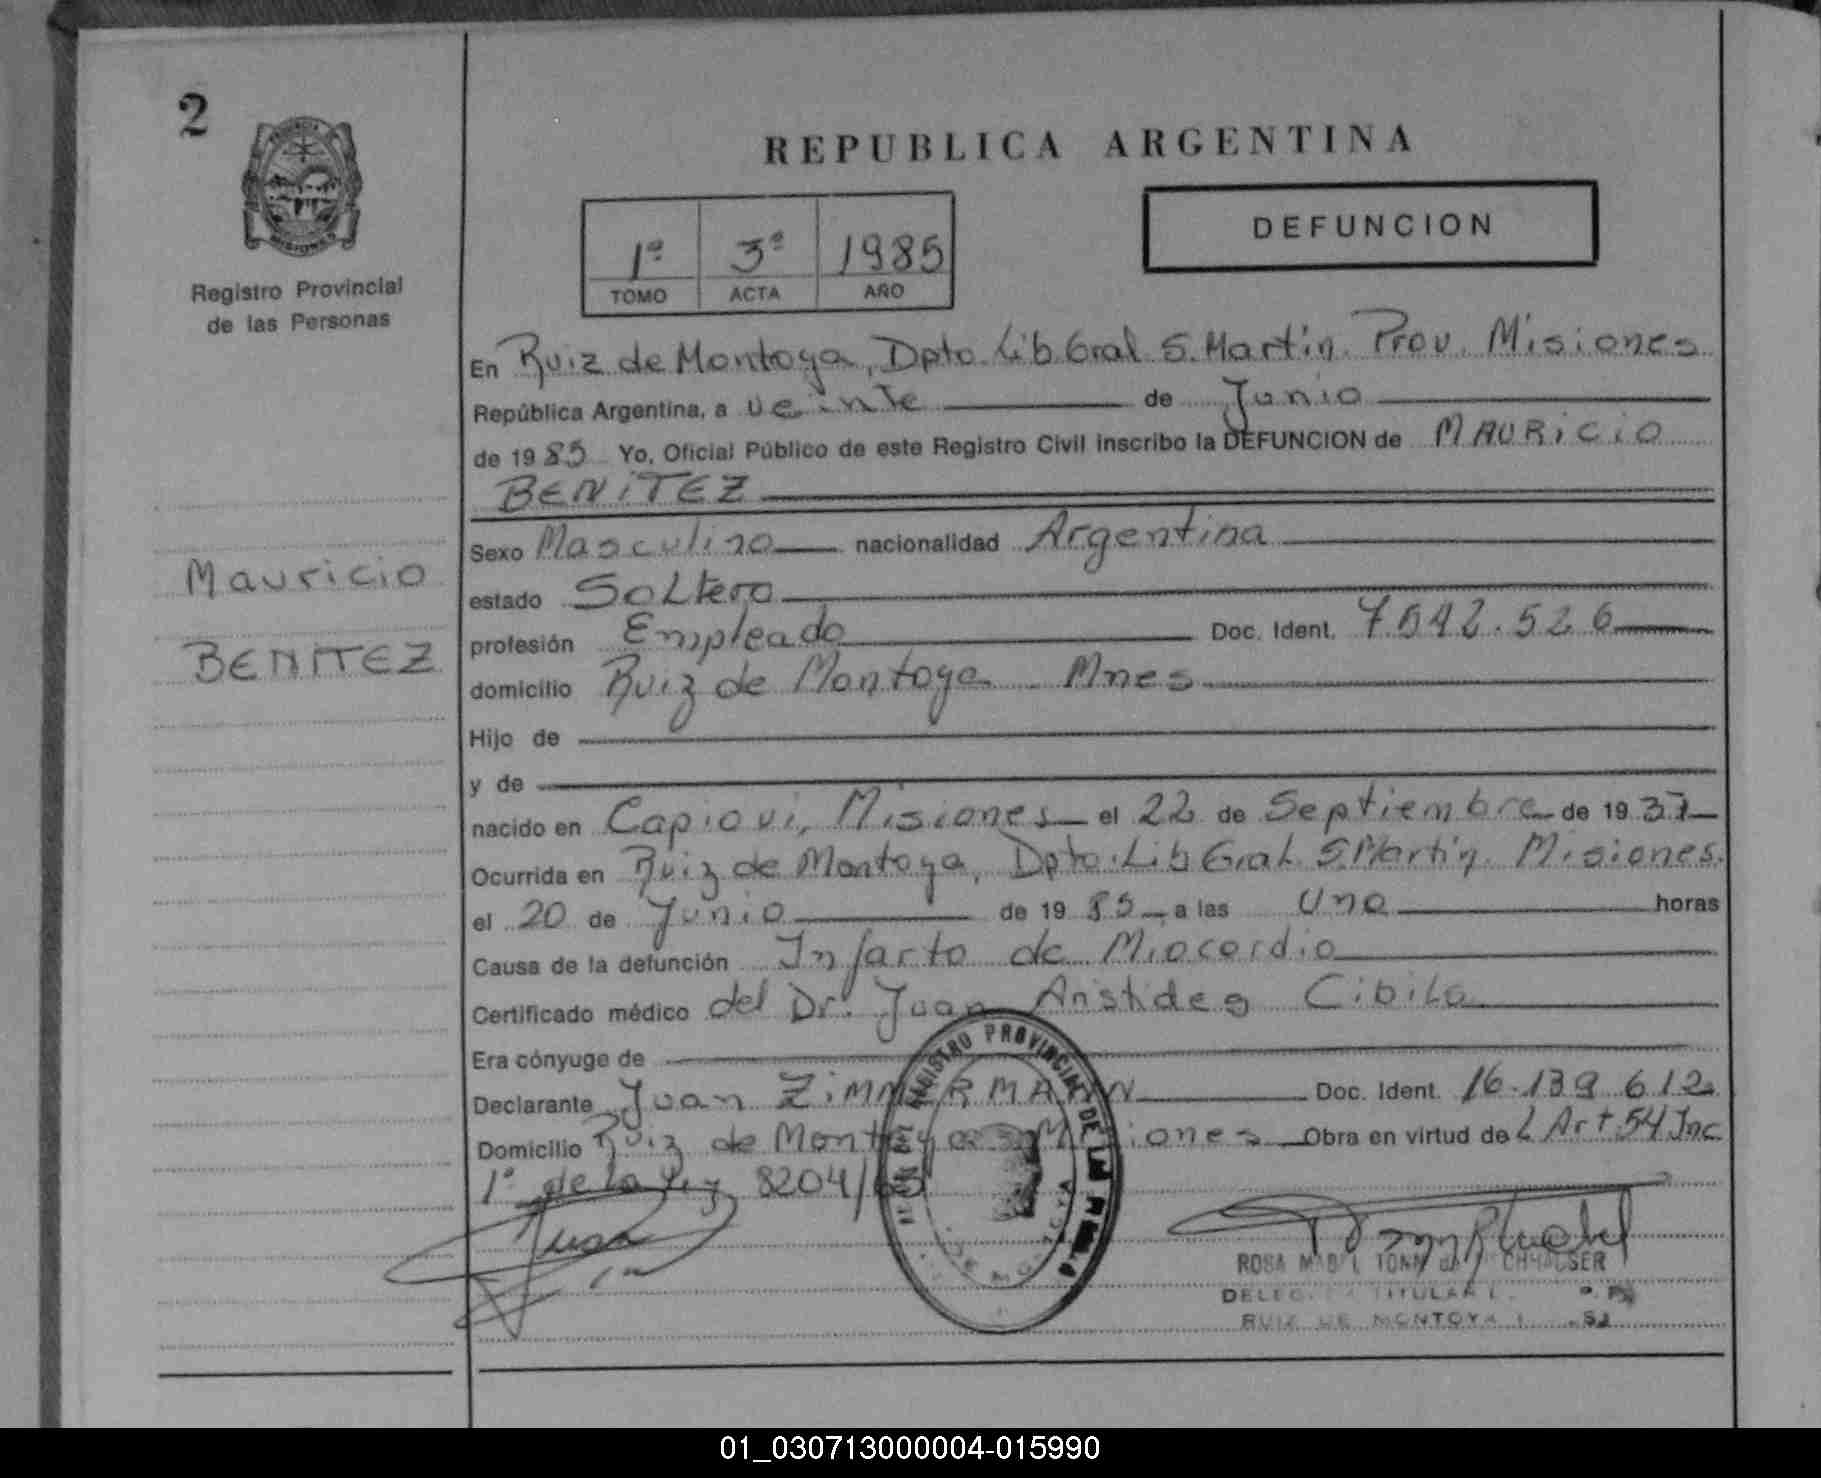 2
PROVINCIA
MISIONES
Registro Provincial
de las Personas
REPUBLICA ARGENTINA
1º 3º 1985
TOMO ACTA AÑO
DEFUNCION
En Ruiz de Montoya, Dpto. Lib Gral S. Martin. Prov. Misiones
República Argentina, a veinte de Junio
de 1985 Yo, Oficial Público de este Registro Civil inscribo la DEFUNCION de MAURICIO
BENITEZ
Sexo Masculino nacionalidad Argentina
estado Soltero
profesión Empleado Doc. Ident. 7.542.526
domicilio Ruiz de Montoya Mnes
Hijo de
y de
nacido en Capiovi, Misiones el 22 de Septiembre de 1937
Ocurrida en Ruiz de Montoya, Dpto. Lib Gral. S. Martin. Misiones.
el 20 de Junio de 1985 a las una horas
Causa de la defunción Infarto de Miocardio
Certificado médico del Dr. Juan Aristides Cibils
Era cónyuge de
Declarante Juan ZIMMERMANN Doc. Ident. 16.139.612
Domicilio Ruiz de Montoya Misiones Obra en virtud del Art 54 Inc
1º de la Ley 8204/63
Mauricio
BENITEZ
REGISTRO PROVINCIAL DE LAS
ROSA MABEL TONN de
RUIZ DE MONTOYA
01_030713000004-015990